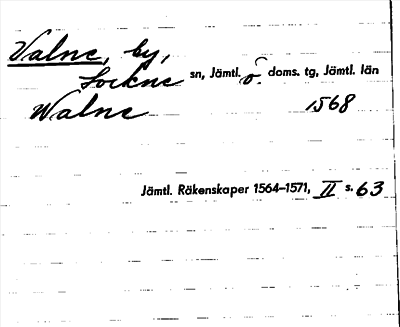 Valne, by,
Lockne sn, Jämtl. ö. doms. tg, Jämtl. län
Walne 1568
Jämtl. Räkenskaper 1564-1571, II s. 63